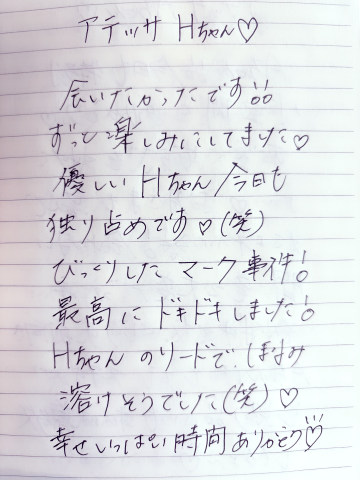 アテッサ Hちゃん♡
会いたかったです!!
ずっと楽しみにしてました♡
優しい Hちゃん 今日も
独り占めです♡(笑)
びっくりした マーク事件!
最高に ドキドキしました!
Hちゃん のリードで、
溶けそうでした(笑)♡
幸せいっぱい時間ありがとう♡